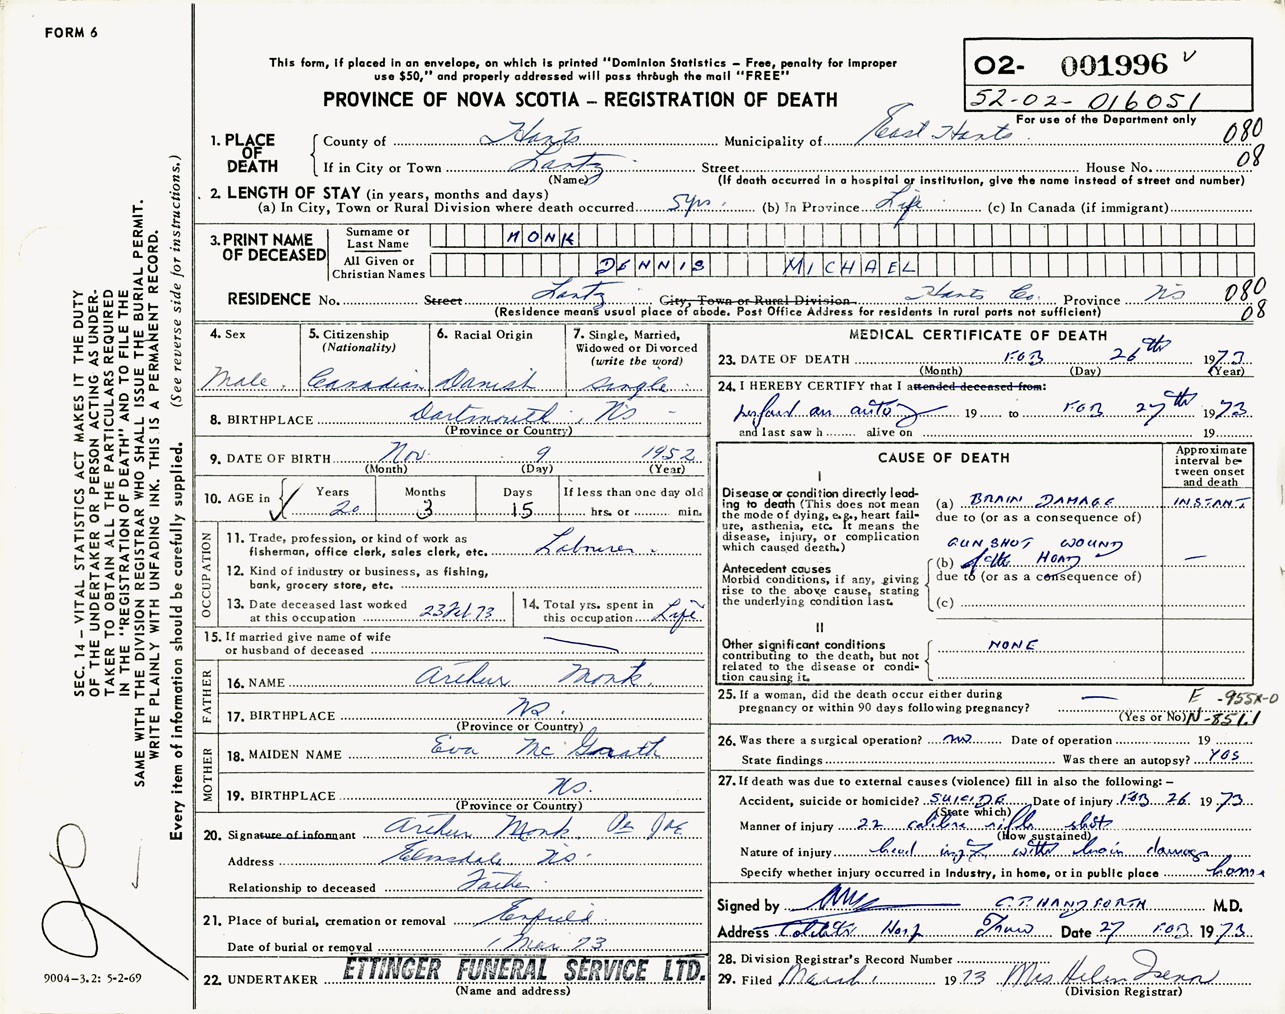 FORM 6
This form, if placed in an envelope, on which is printed "Dominion Statistics – Free, penalty for improper
use $50," and properly addressed will pass through the mail "FREE"
PROVINCE OF NOVA SCOTIA – REGISTRATION OF DEATH
O2- 001996
52-02-016051
For use of the Department only
1. PLACE OF DEATH
County of Hants Municipality of East Hants 080
If in City or Town Lantz Street House No. 08
(Name) (If death occurred in a hospital or institution, give the name instead of street and number)
2. LENGTH OF STAY (in years, months and days)
(a) In City, Town or Rural Division where death occurred 5 yrs. (b) In Province Life (c) In Canada (if immigrant)
3. PRINT NAME OF DECEASED
Surname or Last Name MONK
All Given or Christian Names DENNIS MICHAEL
RESIDENCE No. Street Lantz City, Town or Rural Division Hants Co. Province NS 080
(Residence means usual place of abode. Post Office Address for residents in rural parts not sufficient) 08
4. Sex
Male.
5. Citizenship
(Nationality)
Canadian
6. Racial Origin
Danish
7. Single, Married,
Widowed or Divorced
(write the word)
Single.
8. BIRTHPLACE Dartmouth, NS
(Province or Country)
9. DATE OF BIRTH Nov. 9 1952
(Month) (Day) (Year)
10. AGE in Years Months Days If less than one day old
20 3 15 hrs. or min.
OCCUPATION
11. Trade, profession, or kind of work as
fisherman, office clerk, sales clerk, etc. Labourer.
12. Kind of industry or business, as fishing,
bank, grocery store, etc.
13. Date deceased last worked
at this occupation 23 Feb 73
14. Total yrs. spent in
this occupation Life
15. If married give name of wife
or husband of deceased
FATHER
16. NAME Arthur Monk
17. BIRTHPLACE NS.
(Province or Country)
MOTHER
18. MAIDEN NAME Eva McGrath
19. BIRTHPLACE NS.
(Province or Country)
20. Signature of informant Arthur Monk
Address Elmsdale NS.
Relationship to deceased Father
21. Place of burial, cremation or removal Enfield
Date of burial or removal 1 Mar 73
22. UNDERTAKER ETTINGER FUNERAL SERVICE LTD.
(Name and address)
MEDICAL CERTIFICATE OF DEATH
23. DATE OF DEATH FEB 26th 1973
(Month) (Day) (Year)
24. I HEREBY CERTIFY that I attended deceased from:
19 to FEB 27th 1973
and last saw h alive on 19
CAUSE OF DEATH
Approximate
interval be-
tween onset
and death
I
Disease or condition directly lead-
ing to death (This does not mean
the mode of dying, e.g., heart fail-
ure, asthenia, etc. It means the
disease, injury, or complication
which caused death.)
(a) BRAIN DAMAGE INSTANT
due to (or as a consequence of)
GUNSHOT WOUND
Antecedent causes
Morbid conditions, if any, giving
rise to the above cause, stating
the underlying condition last.
(b) of the HEAD —
due to (or as a consequence of)
(c)
II
Other significant conditions
contributing to the death, but not
related to the disease or condi-
tion causing it.
NONE
25. If a woman, did the death occur either during
pregnancy or within 90 days following pregnancy? —
(Yes or No)
E -955X-0
N-851.1
26. Was there a surgical operation? no Date of operation 19
State findings Was there an autopsy? YES
27. If death was due to external causes (violence) fill in also the following:–
Accident, suicide or homicide? SUICIDE Date of injury FEB 26 1973
(State which)
Manner of injury 22 calibre rifle shot
(How sustained)
Nature of injury head injury with brain damage
Specify whether injury occurred in Industry, in home, or in public place home
Signed by C.P. HANDFORTH M.D.
Address Colchester Hosp Truro Date 27 FEB 1973
28. Division Registrar's Record Number
29. Filed March 1 1973 Mrs Helen
(Division Registrar)
SEC. 14 – VITAL STATISTICS ACT MAKES IT THE DUTY
OF THE UNDERTAKER OR PERSON ACTING AS UNDER-
TAKER TO OBTAIN ALL THE PARTICULARS REQUIRED
IN THE "REGISTRATION OF DEATH" AND TO FILE THE
SAME WITH THE DIVISION REGISTRAR WHO SHALL ISSUE THE BURIAL PERMIT.
WRITE PLAINLY WITH UNFADING INK. THIS IS A PERMANENT RECORD.
Every item of information should be carefully supplied. (See reverse side for instructions.)
9004–3.2: 5-2-69